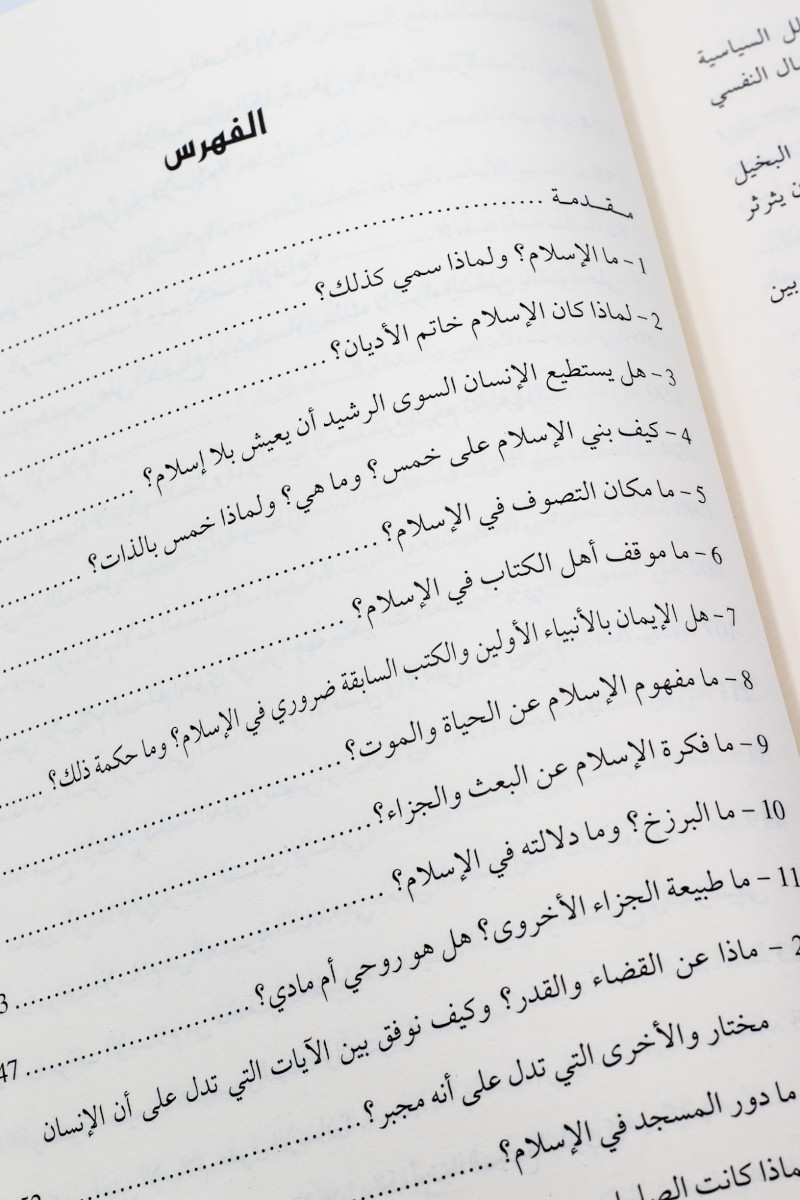 الفهرس
مقدمة ........................
1 - ما الإسلام؟ ولماذا سمي كذلك؟ ........................
2 - لماذا كان الإسلام خاتم الأديان؟ ........................
3 - هل يستطيع الإنسان السوى الرشيد أن يعيش بلا إسلام؟ ............
4 - كيف بني الإسلام على خمس؟ وما هي؟ ولماذا خمس بالذات؟ .........
5 - ما مكان التصوف في الإسلام؟ ........................
6 - ما موقف أهل الكتاب في الإسلام؟ ........................
7 - هل الإيمان بالأنبياء الأولين والكتب السابقة ضروري في الإسلام؟ وما حكمة ذلك؟ ......
8 - ما مفهوم الإسلام عن الحياة والموت؟ ........................
9 - ما فكرة الإسلام عن البعث والجزاء؟ ........................
10 - ما البرزخ؟ وما دلالته في الإسلام؟ ........................ 3
11 - ما طبيعة الجزاء الأخروى؟ هل هو روحي أم مادي؟ ............ 47
2 - ماذا عن القضاء والقدر؟ وكيف نوفق بين الآيات التي تدل على أن الإنسان
مختار والأخرى التي تدل على أنه مجبر؟ ........................
ما دور المسجد في الإسلام؟ ........................
ماذا كانت
لل السياسية
النفسي
البخيل
يثرثر
بين